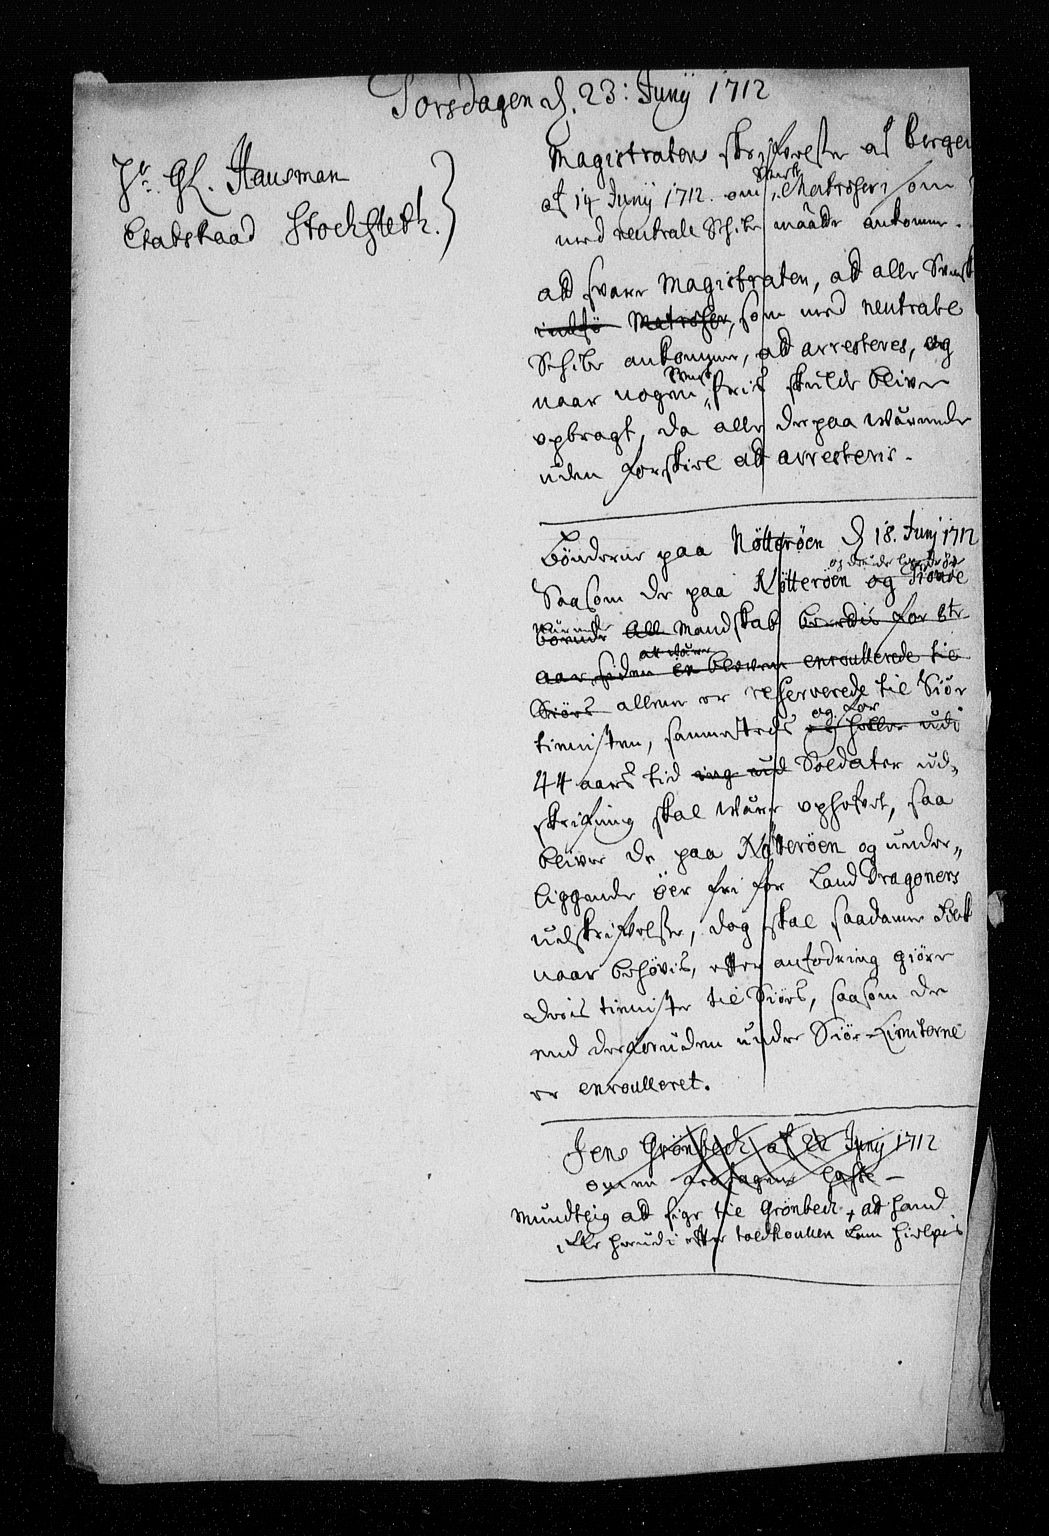 Torsdagen d. 23: Junÿ 1712
Hr. Gl. Hausman
Etatsraad Stochfleth.
Magistratens skrifvelse af Bergen
af 14 Junÿ 1712. om Svensk Matroser, som
med neutrale Schibe maatte ankomme.
att svare Magistraten, att alle Svensk
Matroser, som med neutrale
Schibe ankommer, att arresteres, og
naar nogen Svensk friis skulde bliven
opbragt, da alle derpaa wærende
uden forskiel att arresteris.
Bønderne paa Nøtterøen d 18. Junj 1712
Saasom de paa Nøtterøen og Tiømøe
wærende all Mandskab beredis for otte
aar siden en bleven enroullerede til
Siøes allene er reserverede til Siøe
tienisten, sammesteds og for
44 aars tid Soldater ud-
skrifning skal være ophøfvet, saa
bliver de paa Nøtterøen og under-
liggende øer fri for Land Dragoners
udskrifvelse, dog skal saadanne Folck
naar behøvis, efter anfodring giøre
deris tieniste til Siøes, saasom de
end desforuden under Siøe-Limiterne
er enroulleret.
Jens Grønbech af 22 Junÿ 1712
om en
Mundtlig att sige til Grønbech, att hand
efter toldroullen kan hielpis